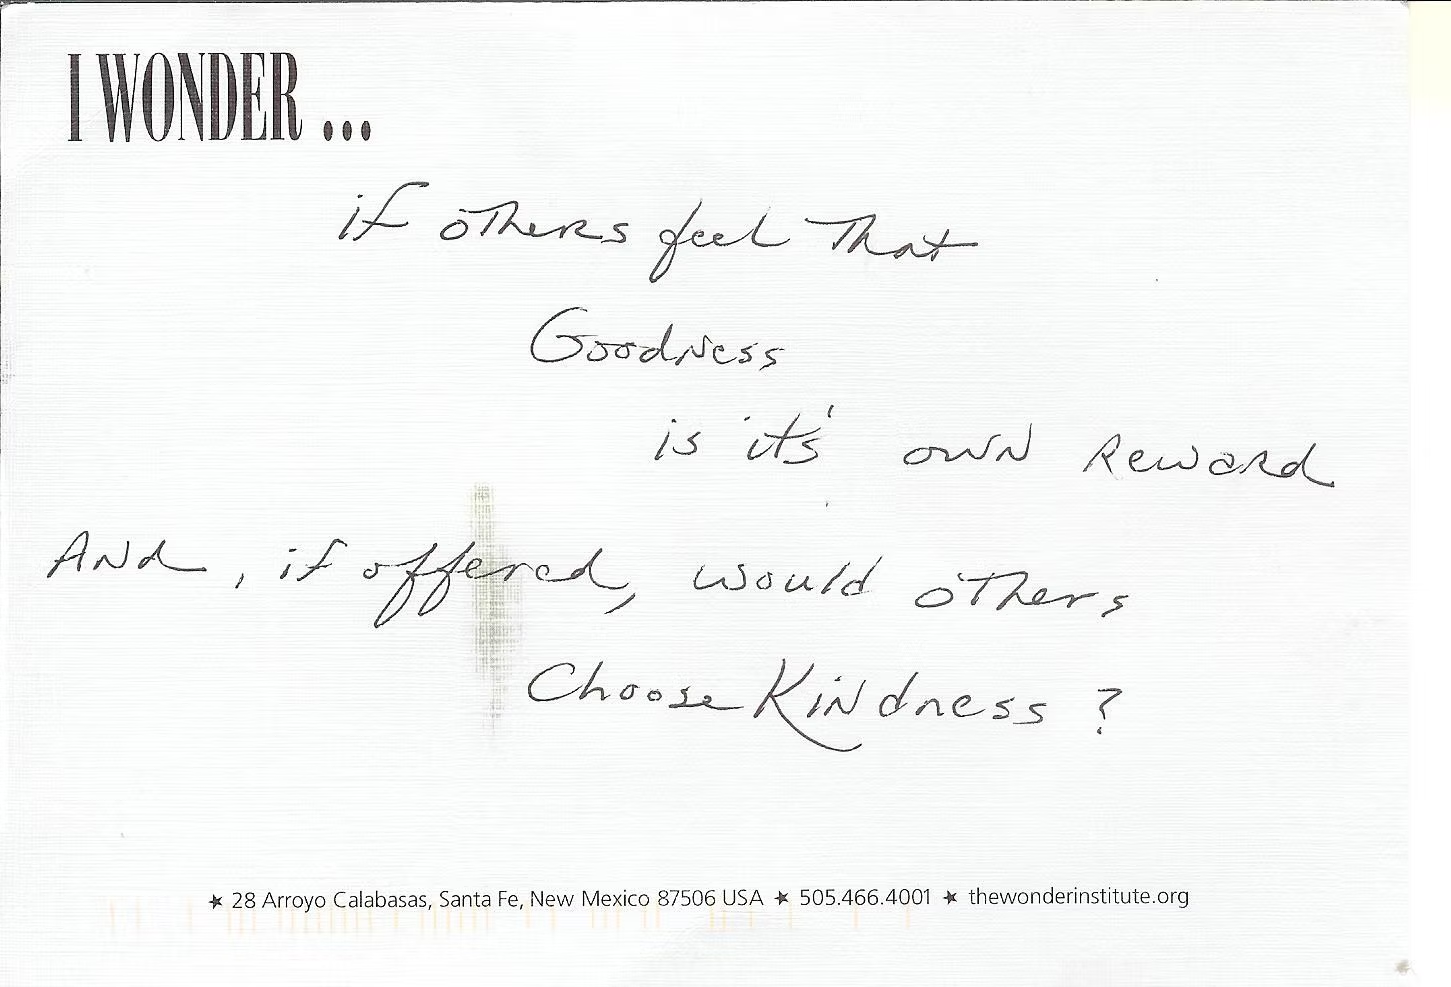 I WONDER ...
if others feel that
Goodness
is it's own Reward
And, if offered, would others
Choose Kindness?
★ 28 Arroyo Calabasas, Santa Fe, New Mexico 87506 USA ★ 505.466.4001 ★ thewonderinstitute.org